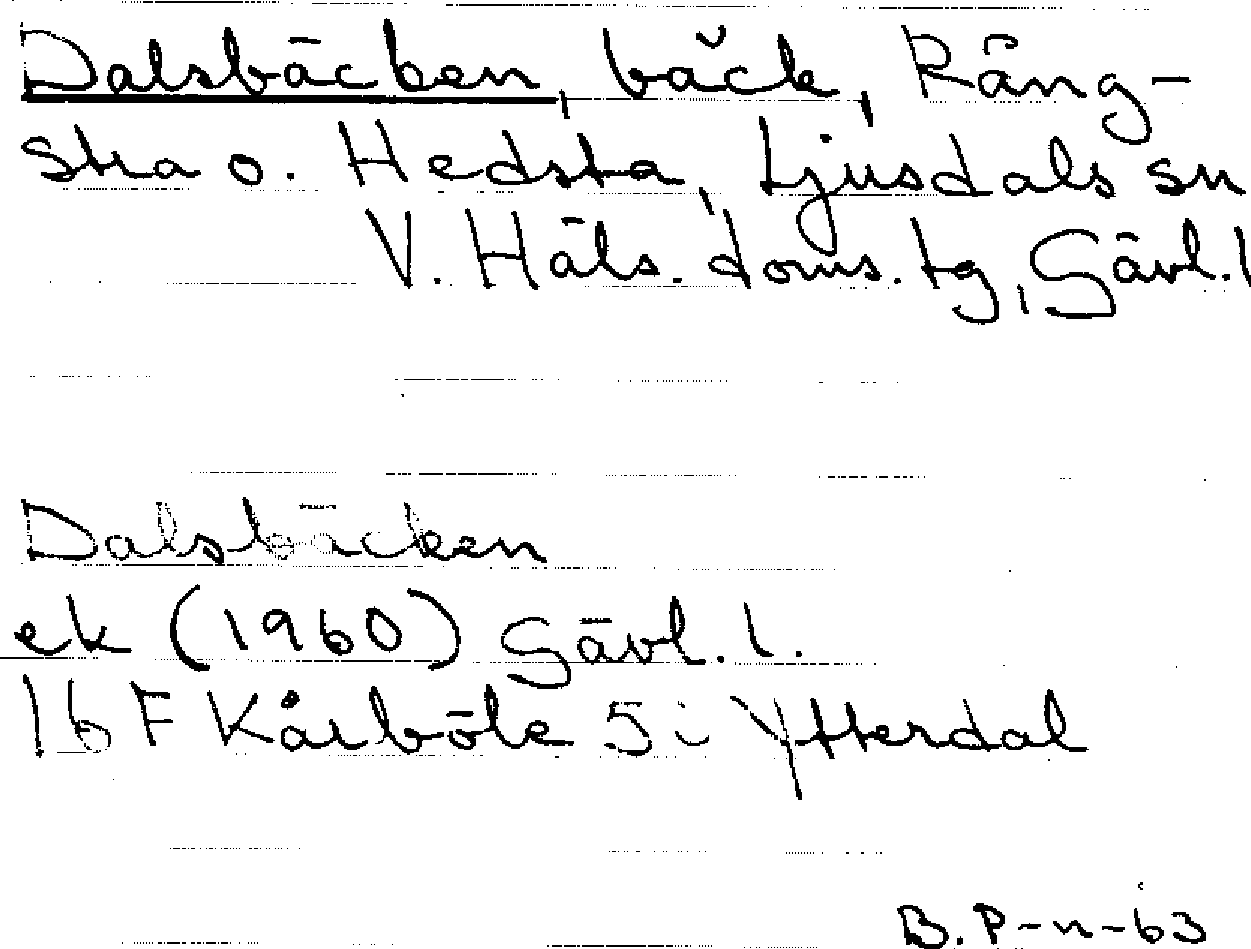 Dalsbäcken, bäck, Räng-
stra o. Hedsta, Ljusdals sn
V. Häls. doms. tg, Gävl. l
Dalsbäcken
ek (1960) Gävl. l.
16 F Kårböle 5i Ytterdal
B. P-n-63